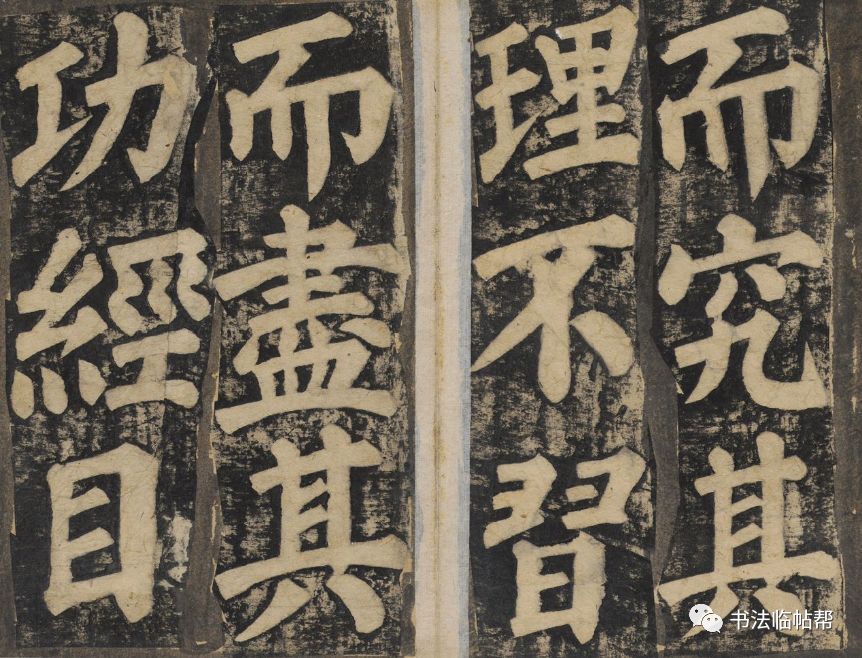 而究其
理不習
而盡其
功經目
书法临帖帮